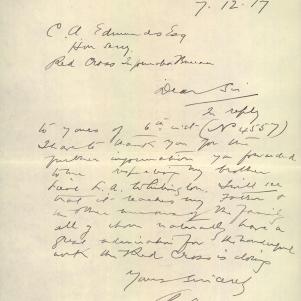 7.12.17
C. A. Edmunds Esq
Hon Secy.
Red Cross Information Bureau
Dear Sir
In reply
to yours of 6th inst (No 4557)
I have to thank you for the
further information you forwarded
to me re my brother
Lieut L. A. Whitington. I will see
that it reaches my father &
the other members of the family
all of whom naturally have a
great admiration for the wonderful
work the Red Cross is doing
Yours sincerely